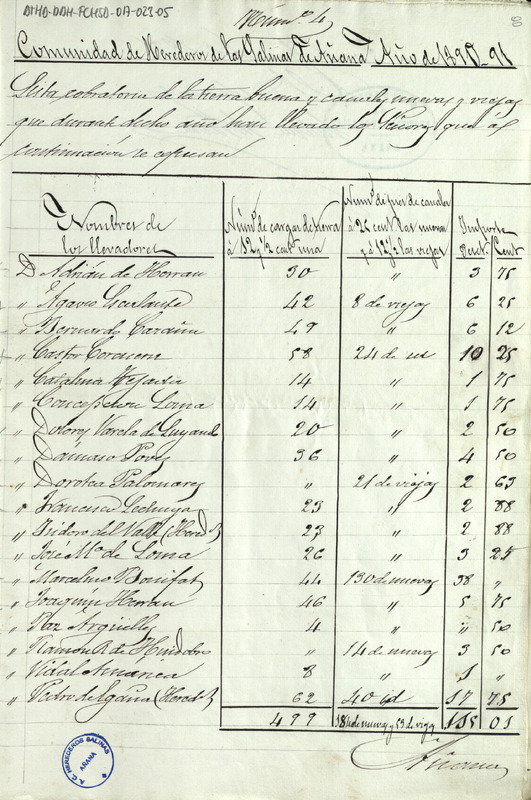 DIHD-DDH-FCHSD-DA-023-05
Núm.º 4
Comunidad de Herederos de las Salinas de Añana Año de 1890-91
Lista cobratoria de la tierra buena y canales nuevas y viejas
que durante dicho año han llevado los Señores que á
continuación se espresan
Nombres de los llevadores
Núm.º de cargas de tierra á 12 y ½ cent. una
Núm.º de pies de canales á 25 cent. las nuevas y á 12 ½ las viejas
Importe
Peset. Cent.
D. Adrián de Herran 30 " 3 75
" Agavio Escalante 42 8 de viejas 6 25
" Bernardo Carañue 49 " 6 12
" Castor Corcuera 58 24 de id 10 25
" Catalina 14 " 1 75
" Concepción Loma 14 " 1 75
" Dolores Varela de Luyand 20 " 2 50
" Dámaso Poves 36 " 4 50
" Dorotea Palomares " 21 de viejas 2 63
" Francisco Lechuga 23 " 2 88
" Isidoro del Valle (Hered.) 23 " 2 88
" José M.ª de Loma 26 " 3 25
" Marcelino Bonifaz 44 130 de nuevas 38 "
" Joaquín Herran 46 " 5 75
" Paz Argüelles 4 " " 50
" Ramón R. de Hinojo " 14 de nuevas 3 50
" Vidal 8 " 1 "
" Pedro de Egaña (Hered.) 62 40 id 17 75
499 184 de nuevas y 53 de viejas 115 01
Añana
A.C. HEREDEROS SALINAS
AÑANA